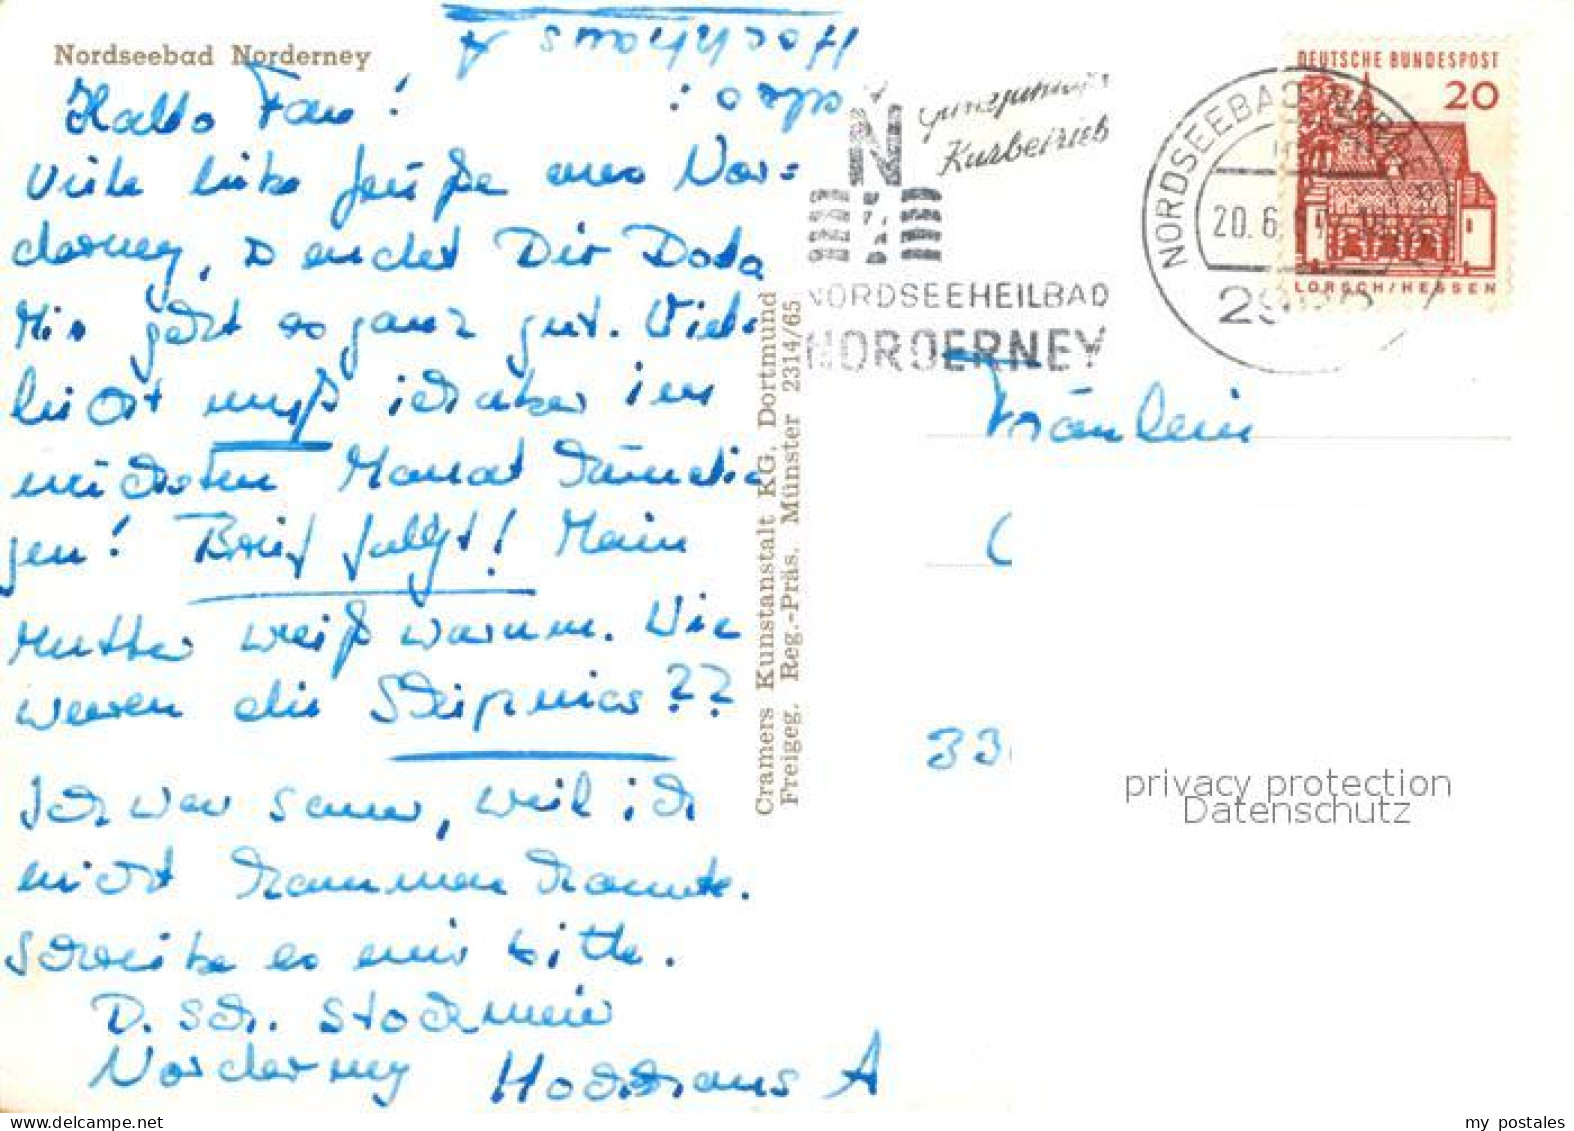 Nordseebad Norderney
Hallo Fan!
Viele liebe Grüße aus Nor=
derney, sendet Dir Dota
Mir geht es ganz gut. Viel-
leicht muß ich aber im
nächsten Monat kündi-
gen! Brief folgt! Mein
Mutter weiß warum. Wie
waren die
Ich war sauer, weil ich
nicht kommen konnte.
Schreibe es mir bitte.
D. Sch. Stockmeier
Norderney Hochhaus A
also:
Hochhaus A
Cramers Kunstanstalt KG, Dortmund
Freigeg. Reg.-Präs. Münster 2314/65
ganzjährig
Kurbetrieb
NORDSEEHEILBAD
NORDERNEY
NORDSEEBAD NORDERNEY
20.6.
DEUTSCHE BUNDESPOST
20
LORSCH/HESSEN
Fräulein
33
privacy protection
Datenschutz
my postales